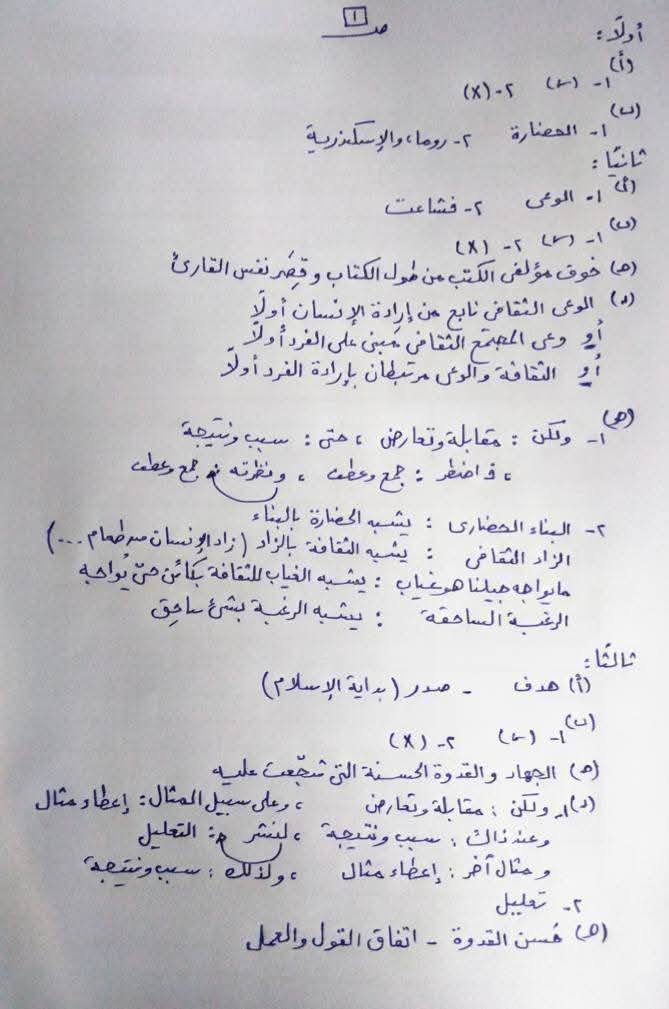 ص ١
أولًا:
(أ)
١- (✓) ٢- (X)
(ب)
١- الحضارة ٢- روما، والإسكندرية
ثانيًا:
(أ) ١- الوعى ٢- فشاعت
(ب) ١- (✓) ٢- (X)
(جـ) خوف مؤلفى الكتب من طول الكتاب وقِصَر نفس القارئ
(د) الوعى الثقافى نابع من إرادة الإنسان أولًا
أو وعى المجتمع الثقافى مبنى على الفرد أولًا
أو الثقافة والوعى مرتبطان بإرادة الفرد أولًا
(هـ)
١- ولكن : مقابلة وتعارض ، حتى : سبب ونتيجة
، فاضطر : جمع وعطف ، ونظرته : جمع وعطف
٢- البناء الحضارى : يشبه الحضارة بالبناء
الزاد الثقافى : يشبه الثقافة بالزاد (زاد الإنسان من طعام ...)
مايواجه جيلنا هو غياب : يشبه الغياب للثقافة بكائن حىّ يُواجه
الرغبة الساحقة : يشبه الرغبة بشئ ساحِق
ثالثًا:
(أ) هدف - صدر (بداية الإسلام)
(ب)
١- (✓) ٢- (X)
(جـ) الجهاد والقدوة الحسنة التى شجّعت عليه
(د) ١- ولكن : مقابلة وتعارض ، وعلى سبيل المثال : إعطاء مثال
وعند ذاك : سبب ونتيجة ، لننشر : التعليل
ومثال آخر : إعطاء مثال ، ولذلك : سبب ونتيجة
٢- تعليل
(هـ) حُسن القدوة - اتفاق القول والعمل